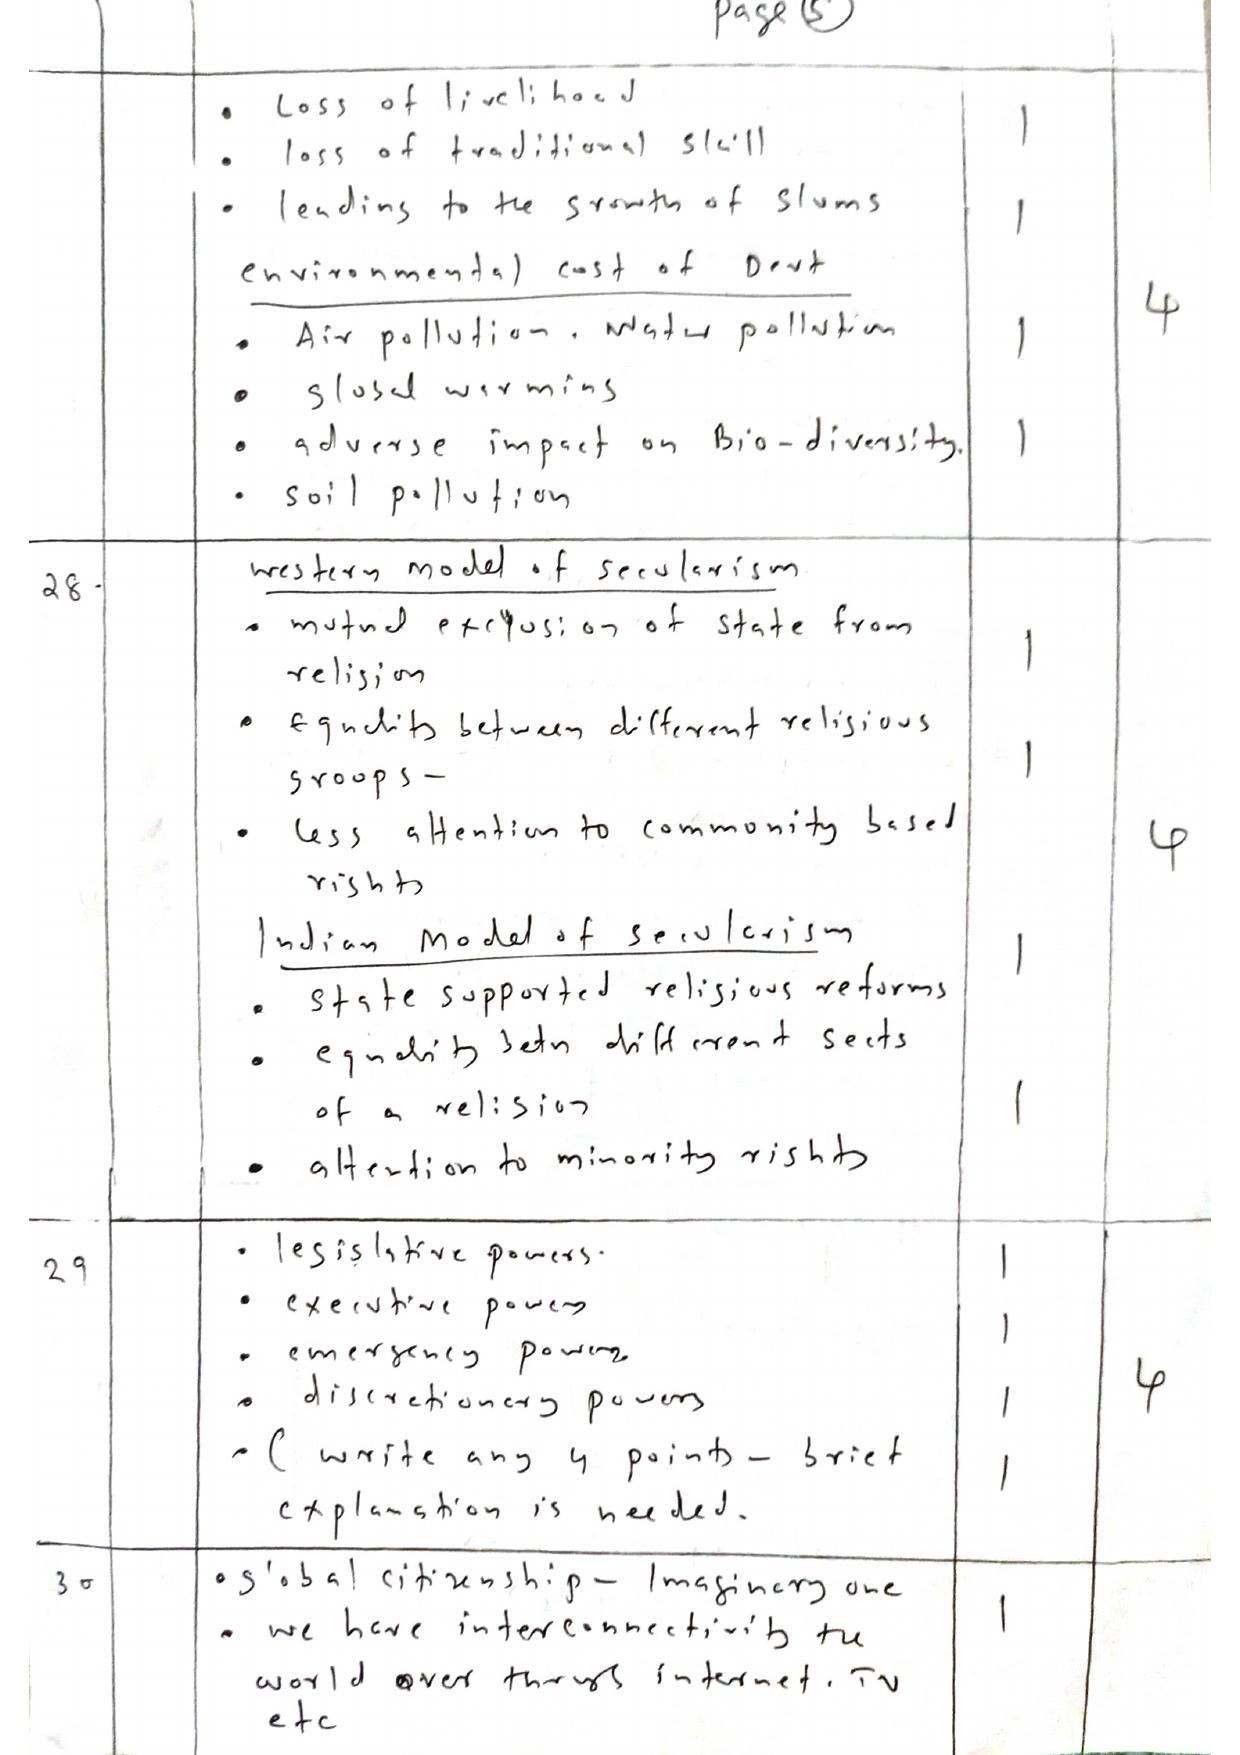 Page 5
• Loss of livelihood
• loss of traditional skill
1
• leading to the growth of slums
1
environmental cost of Devt
4
• Air pollution. Water pollution
1
• global warming
• adverse impact on Bio-diversity.
1
• soil pollution
28.
western model of secularism
• mutual exclusion of state from
religion
1
• Equality between different religious
groups-
1
• less attention to community based
rights
4
Indian model of secularism
1
• state supported religious reforms
• equality betn different sects
of a religion
1
• attention to minority rights
29
• legislative powers.
1
• executive powers
1
• emergency powers
• discretionary powers
1
4
• ( write any 4 points - brief
explanation is needed.
1
30
• global citizenship - Imaginary one
• we have interconnectivity the
1
world over through internet. TV
etc